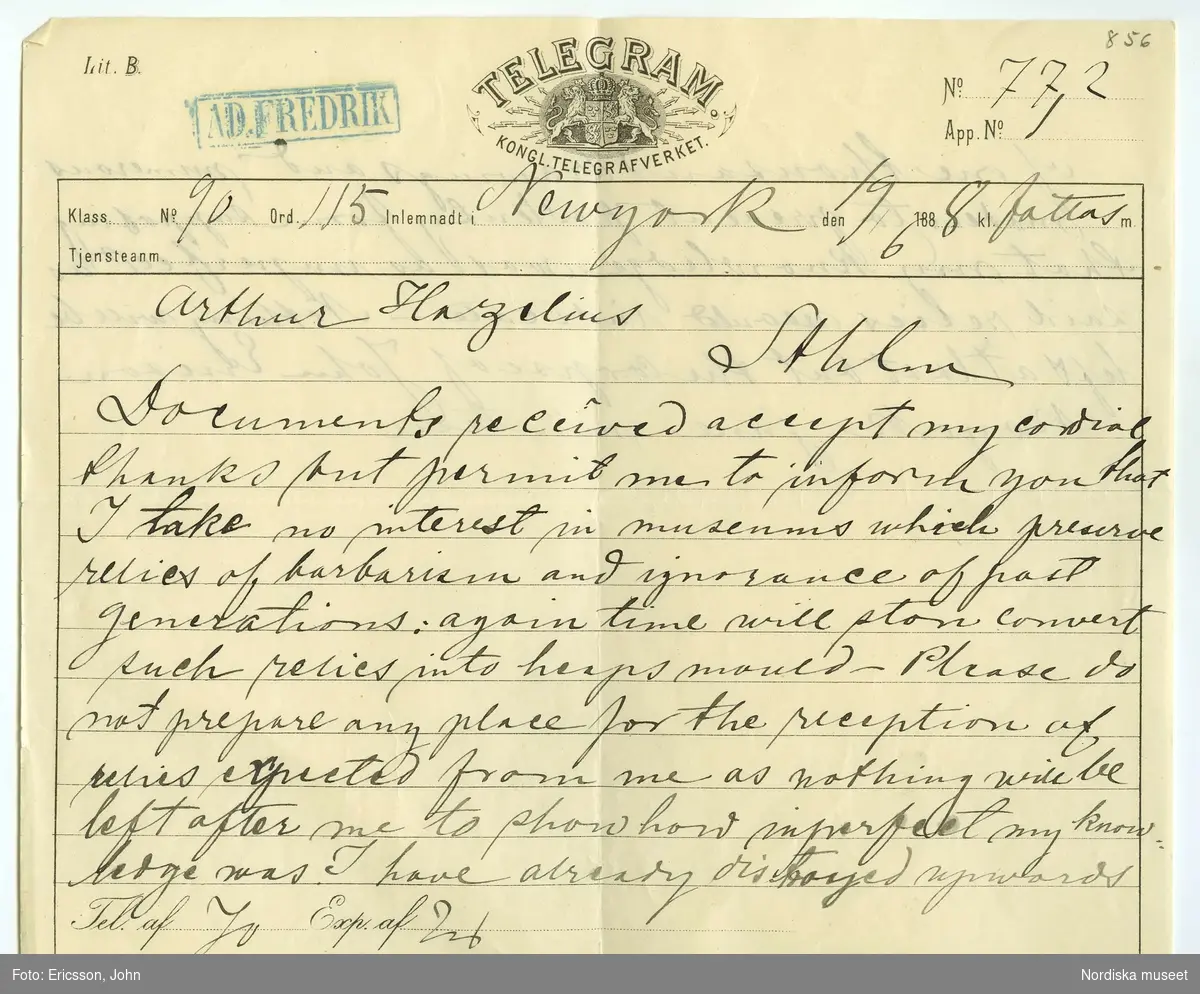 856
Lit. B.
AD. FREDRIK
TELEGRAM.
KONGL. TELEGRAFVERKET.
No 77,2
App. No
Klass. No 90 Ord. 115 Inlemnadt i Newyork den 19/6 1888 kl. fattas m.
Tjensteanm.
Arthur Hazelius
Sthlm
Documents received accept my cordial
thanks but permit me to inform you that
I take no interest in museums which preserve
relics of barbarism and ignorance of past
generations: again time will ston convert
such relics into heaps mould – Please do
not prepare any place for the reception of
relics expected from me as nothing will be
left after me to show how inperfect my know-
ledge was. I have already distroyed upwards
Tel. af Exp. af
Foto: Ericsson, John
Nordiska museet